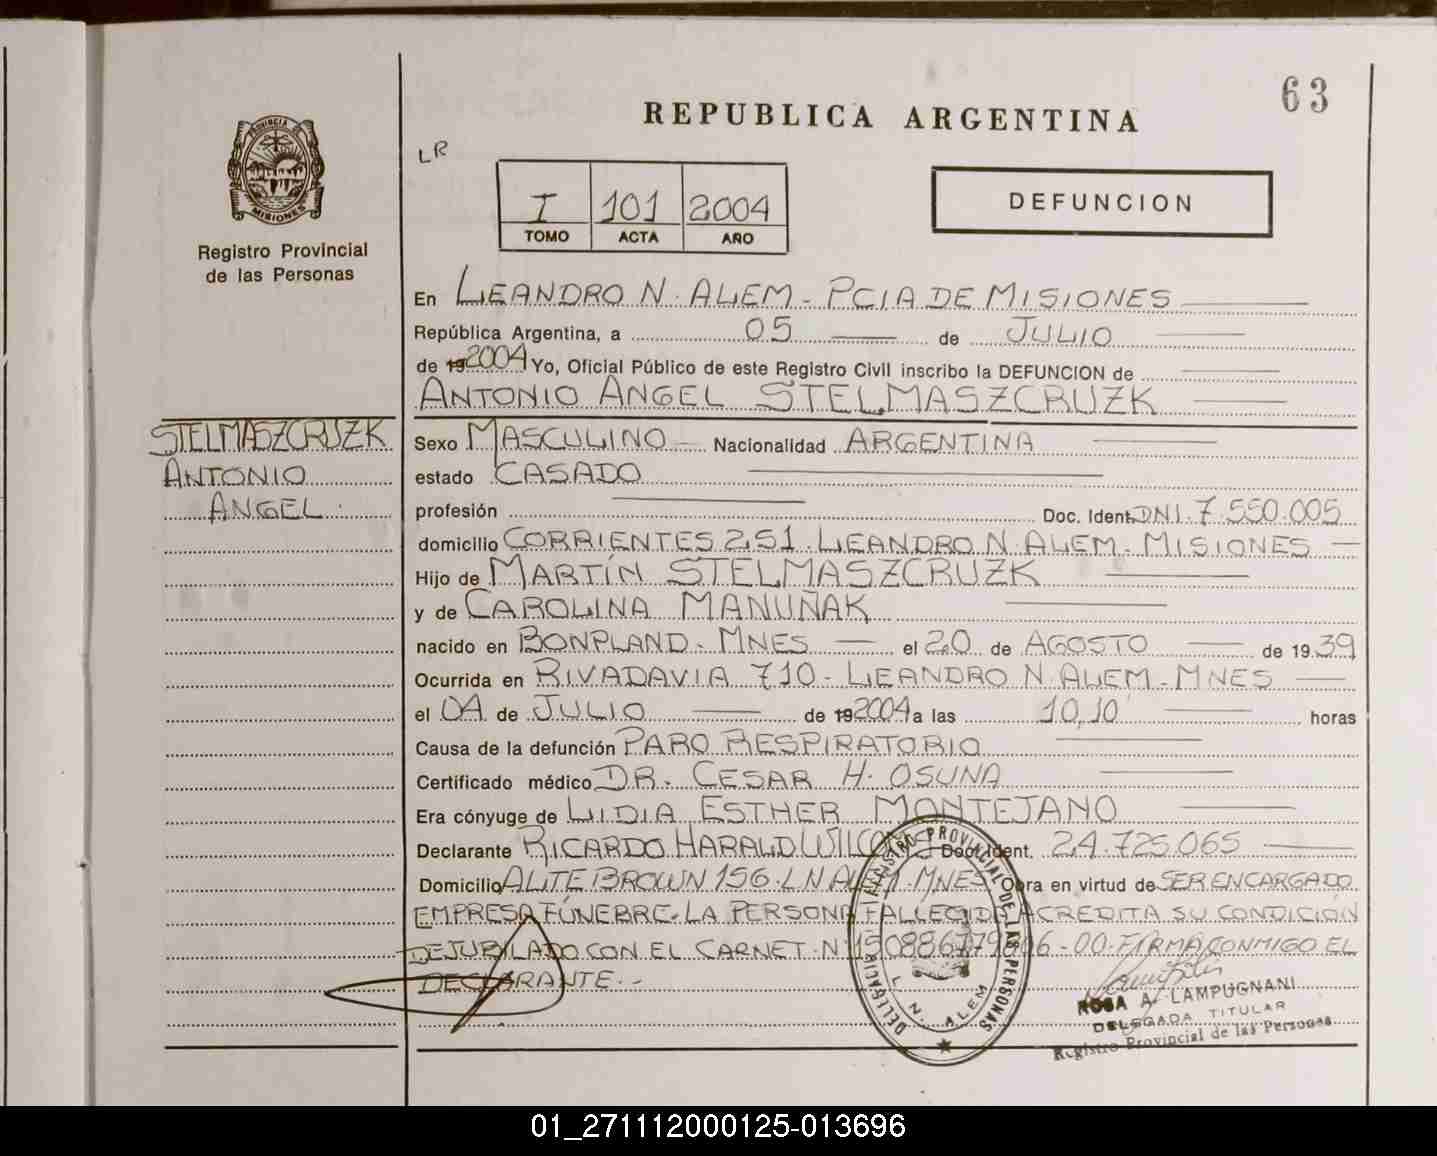 63
REPUBLICA ARGENTINA
LR
PROVINCIA DE
MISIONES
I 101 2004
TOMO ACTA AÑO
DEFUNCION
Registro Provincial
de las Personas
En LEANDRO N. ALEM - PCIA DE MISIONES
República Argentina, a 05 de JULIO
de 19 2004 Yo, Oficial Público de este Registro Civil inscribo la DEFUNCION de
ANTONIO ANGEL STELMASZCRUZK
STELMASZCRUZK
ANTONIO
ANGEL
Sexo MASCULINO Nacionalidad ARGENTINA
estado CASADO
profesión Doc. Ident. DNI. 7.550.005
domicilio CORRIENTES 251. LEANDRO N. ALEM. MISIONES
Hijo de MARTÍN STELMASZCRUZK
y de CAROLINA MANUÑAK
nacido en BONPLAND. MNES el 20 de AGOSTO de 1939
Ocurrida en RIVADAVIA 710 - LEANDRO N. ALEM - MNES
el 04 de JULIO de 19 2004 a las 10,10 horas
Causa de la defunción PARO RESPIRATORIO
Certificado médico DR. CESAR H. OSUNA
Era cónyuge de LIDIA ESTHER MONTEJANO
Declarante RICARDO HARALD Doc. Ident. 24.725.065
Domicilio ALTE BROWN 156. L N ALEM. MNES. Obra en virtud de SER ENCARGADO
EMPRESA FÚNEBRE. LA PERSONA FALLECIDA ACREDITA SU CONDICIÓN
DE JUBILADO CON EL CARNET. Nº -00. FIRMA CONMIGO EL
DECLARANTE.-
DELEGACIA REGISTRO PROVINCIAL DE LAS PERSONAS
L. N. ALEM
ROSA A. LAMPUGNANI
DELEGADA TITULAR
Registro Provincial de las Personas
01_271112000125-013696